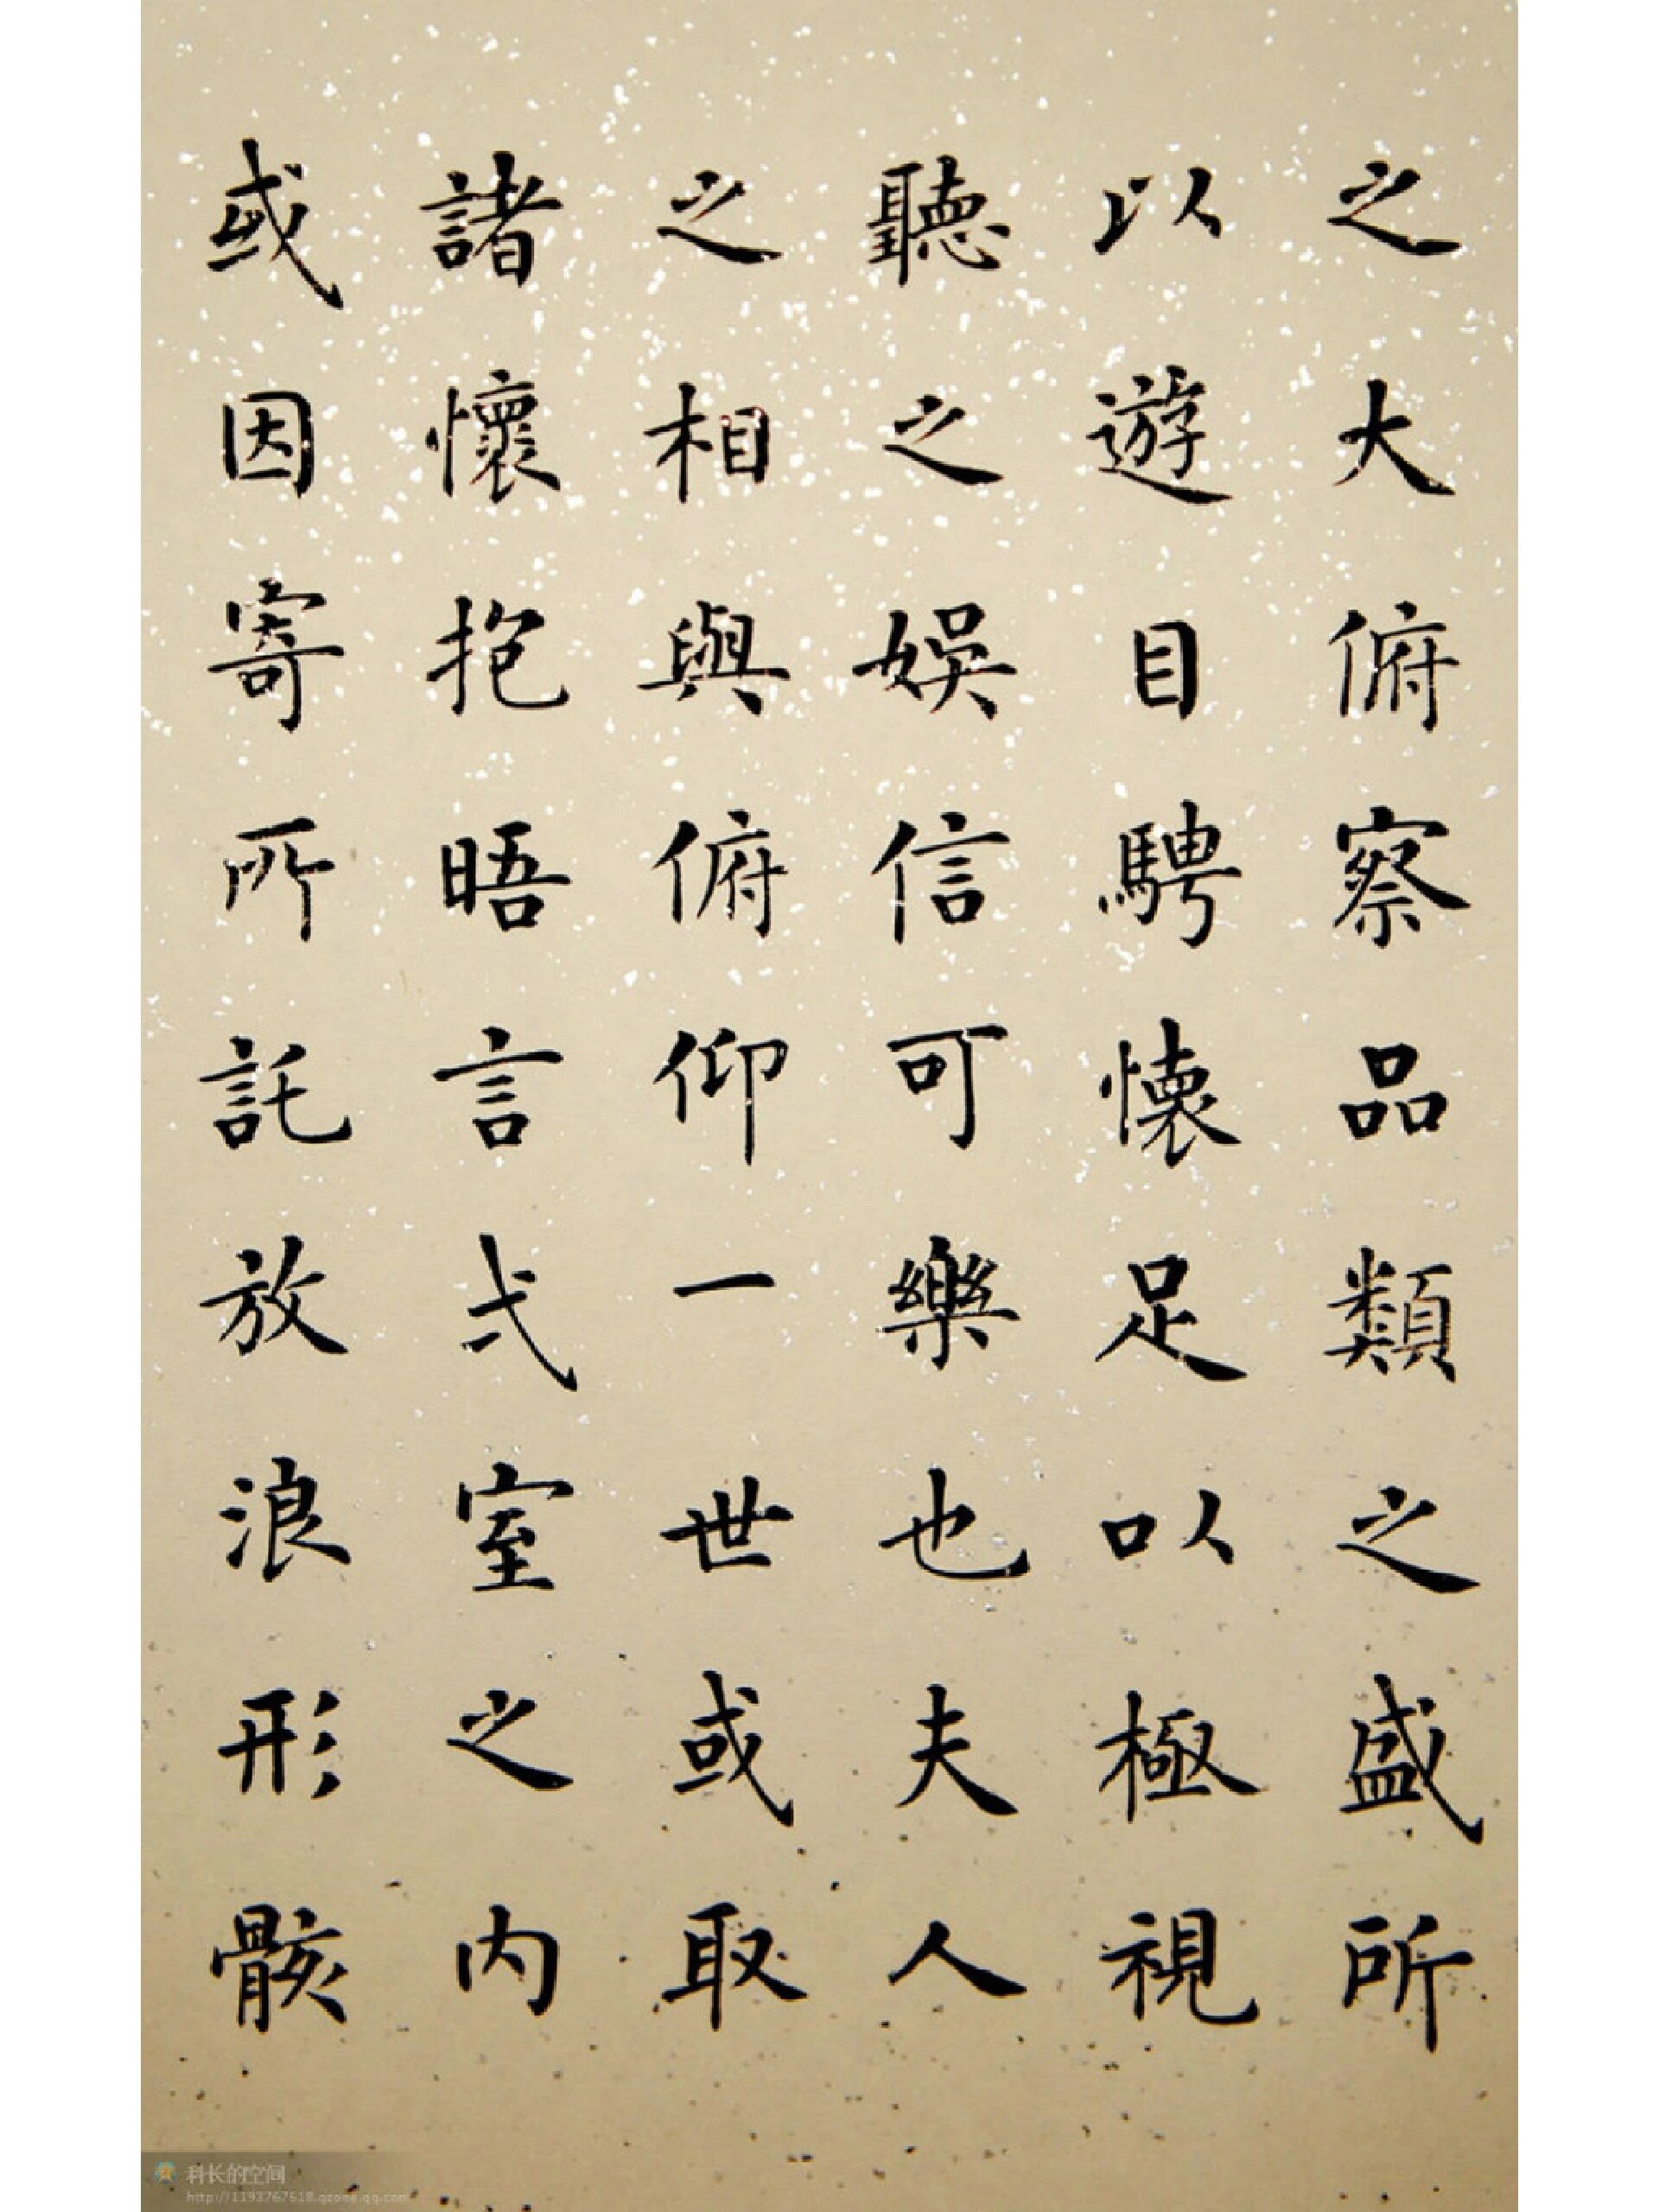 之大俯察品類之盛所
以遊目騁懐足以極視
聽之娛信可樂也夫人
之相與俯仰一世或取
諸懷抱晤言弌室之内
或因寄所託放浪形骸
科长的空间
http://1193767618.qzone.qq.com